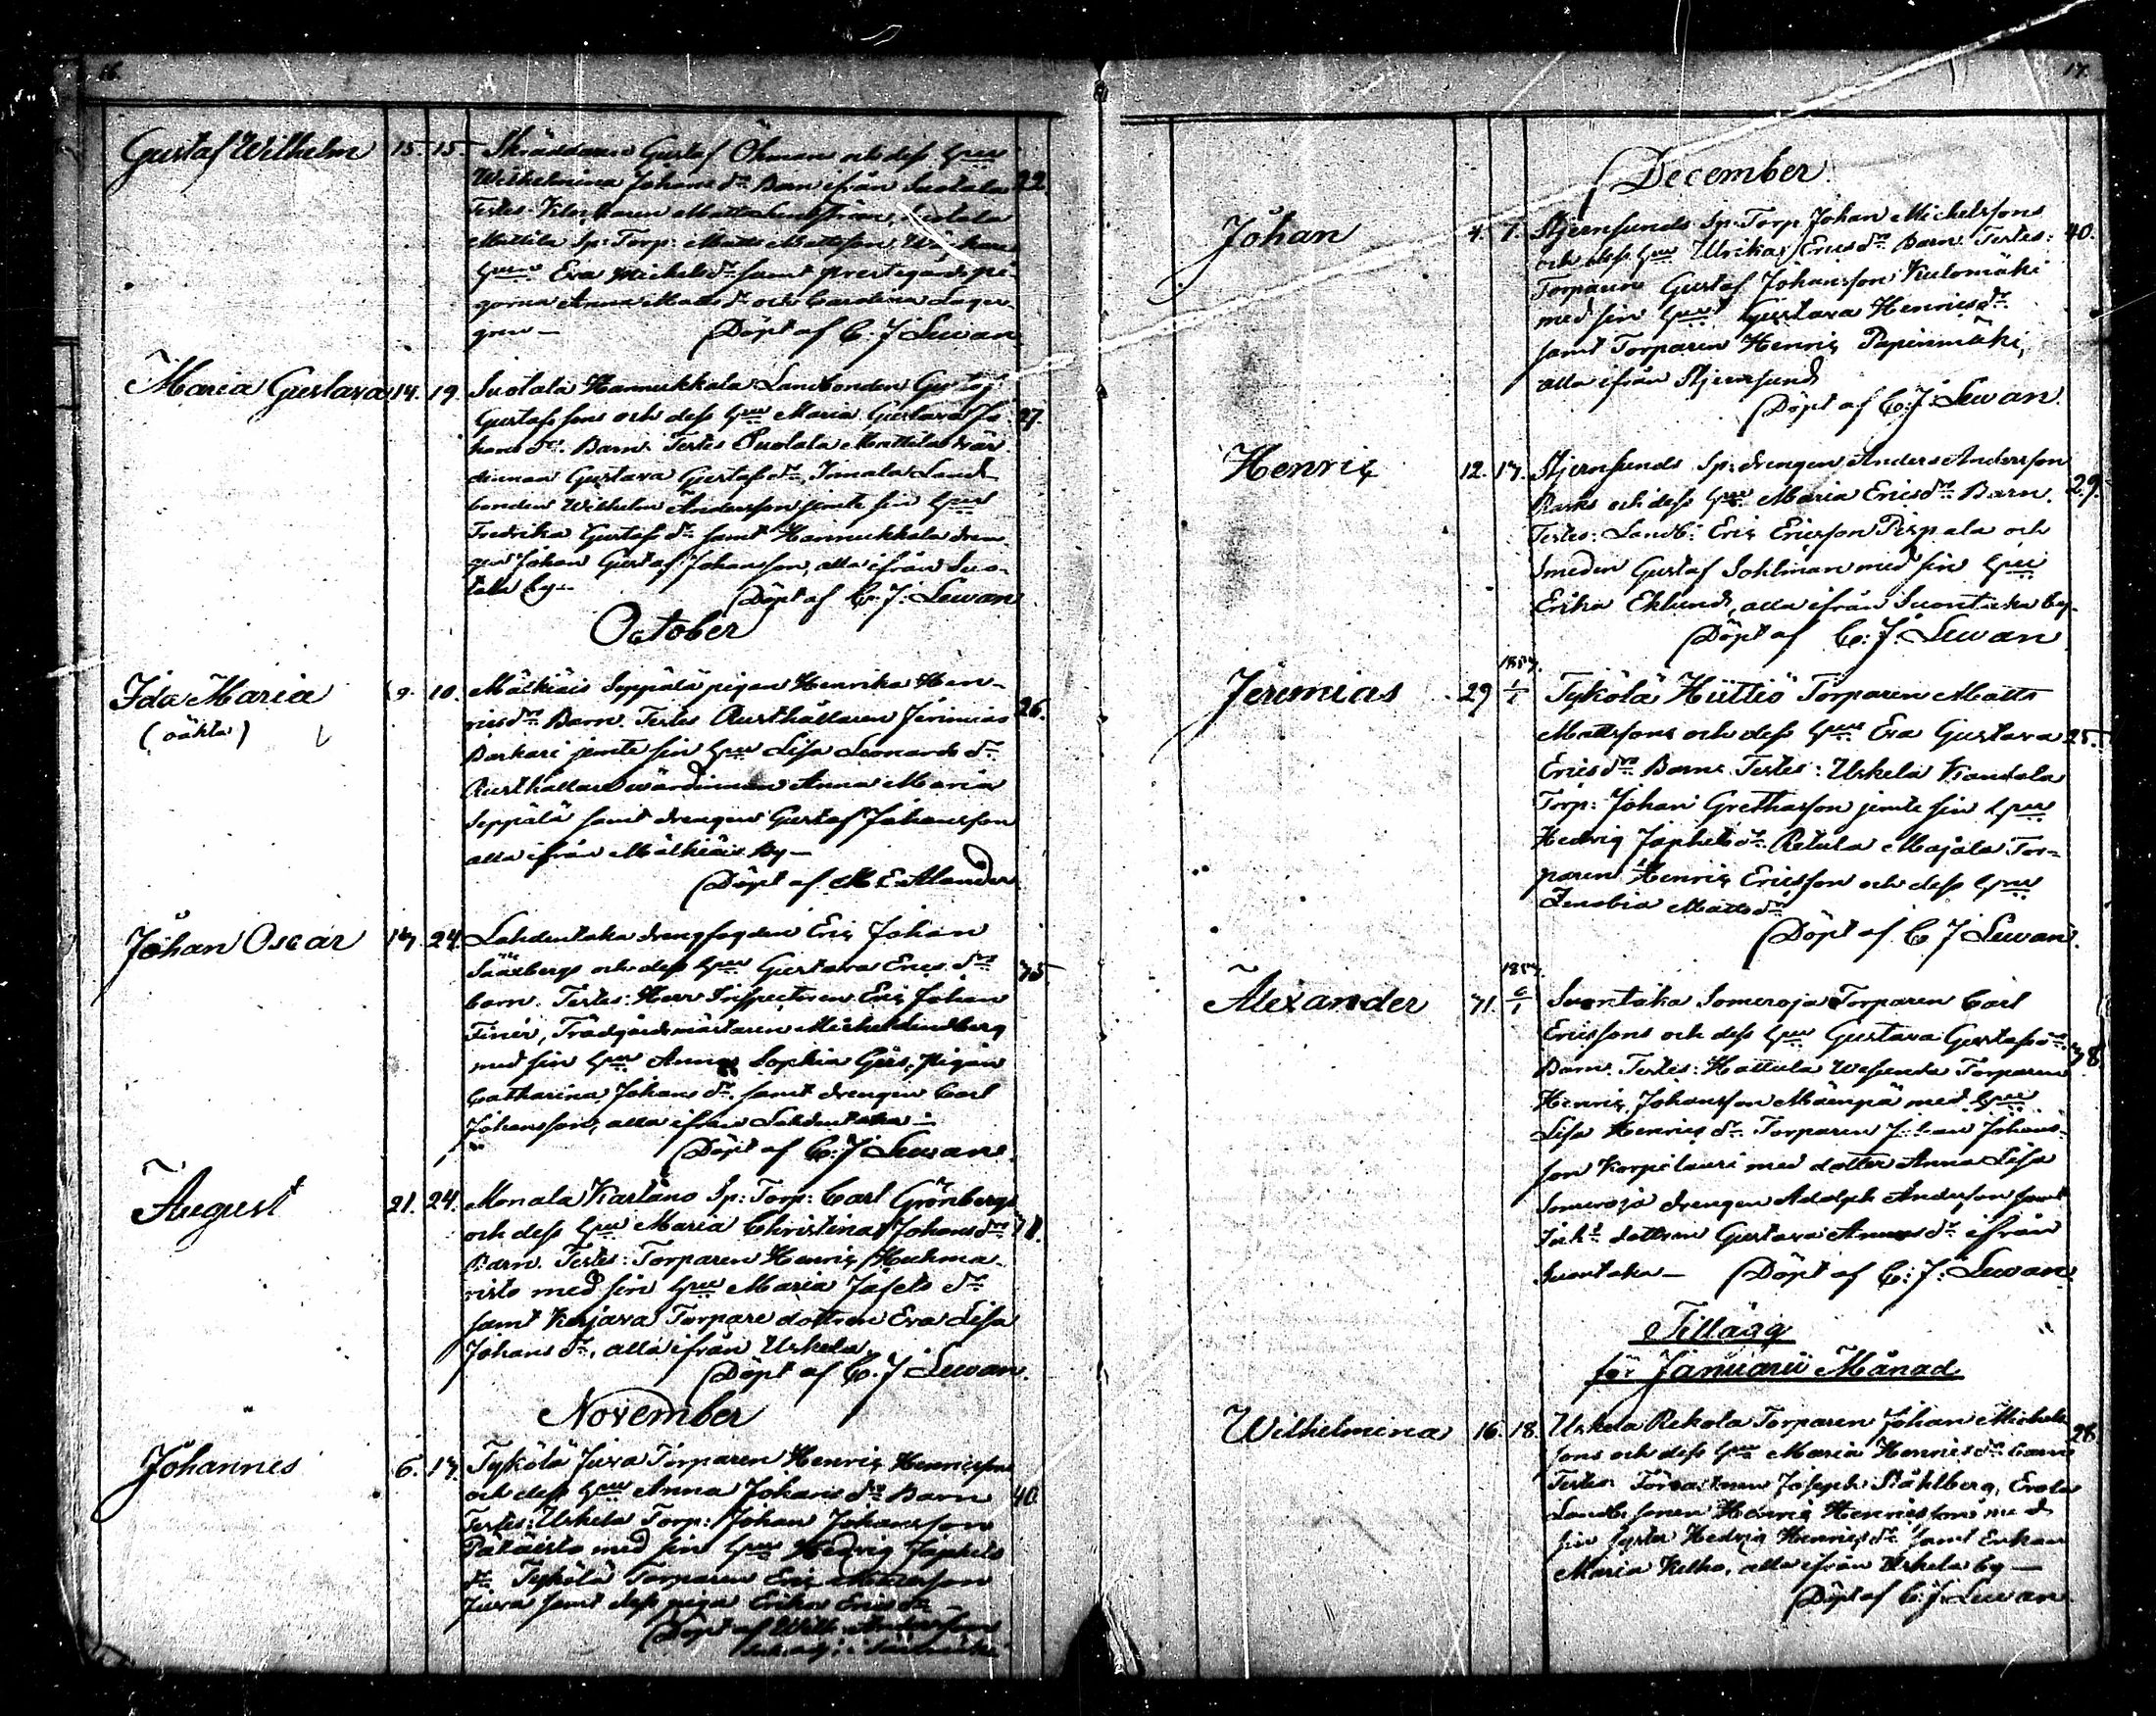 16.
Gustaf Wilhelm 15. 15. Skräddaren Gustaf Öhmans och dess hu
Wilhelmina Johans dr. Barn ifrån Suotala 22.
Testes: Klockaren Matts Lindström, Suotala
Mattila Sp: Torp: Matts Mattsson,
hu Eva Michels dr samt prestegårds pi-
gorna Anna Matts dr och Carolina Lager-
gren — Döpt af C. J. Lewan
Maria Gustava 14. 19. Suotala Hannukkala Landbonden Gustaf
Gustafssons och dess hu Maria Gustava Jo- 27.
hans dr. Barn. Testes Suotala Mattila vär-
dinnan Gustava Gustafs dr, Imala Land-
bonden Wilhelm Andersson jemte sin hu
Fredrika Gustafs dr samt Hannukkala dren-
gen Johan Gustaf Johansson, alla ifrån Suo-
tala by — Döpt af C. J. Lewan
October
Ida Maria 9. 10. Mälkiäis Seppälä pigan Henrika Hen-
(oäkta) rics dr Barn. Testes Rusthållaren Jerimias 26.
Barkari jemte sin hu Lisa Leonards dr
Rusthållarewärdinnan Anna Maria
Seppälä samt drengen Gustaf Johansson
alla ifrån Mälkiäis by —
Döpt af M E Alander
Johan Oscar 17. 24. Lahdentaka drengfogden Eric Johan
Sääxbergs och dess hu Gustava Erics dr 35.
barn. Testes: Herr Inspectoren Eric Johan
Finér, Trädgårdsmästaren Michel Lindberg
med sin hu Anna Sophia Gers, pigan
Catharina Johans dr. samt drengen Carl
Johansson, alla ifrån Lahdentaka —
Döpt af C: J Lewan.
August 21. 24. Monala Kartano Sp: Torp: Carl Grönbergs
och dess hu Maria Christina Johans dr 31.
Barn. Testes: Torparen Henric Huhma-
risto med sin hu Maria Jafets dr
samt Kujava Torpare dottren Eva Lisa
Johans dr, alla ifrån Urhela.
Döpt af C. J Lewan.
November
Johannes 6. 17. Tykölä Juva Torparen Henric Henricssons
och dess hu Anna Johans dr Barn 40.
Testes: Urhela Torp: Johan Johansson
Pataisto med sin hu Hedvig Japhets
dr Tykölä Torparen Eric
Juva samt dess piga Erika Erics dr
Döpt af Wilh. Andersson
17.
December
Johan 4. 7. Stjernsunds Sp: Torp Johan Michelssons
och dess hu Ulrika Erics dr Barn. Testes: 40.
Torparen Gustaf Johansson Kulomäki
med sin hu Gustava Henrics dr
samt Torparen Henric Papinmäki,
alla ifrån Stjernsund
Döpt af C: J: Lewan.
Henric 12. 17. Stjernsunds Sp: drengen Anders Andersson
Rasks och dess hu Maria Erics dr Barn. 29.
Testes: Landb: Eric Ericsson Pispala och
Smeden Gustaf Sohlman med sin hu
Erika Eklund, alla ifrån Suontaka by —
Döpt af C: J: Lewan
1857.
Jeremias 29 1/1 Tykölä Hüttiö Torparen Matts
Mattssons och dess hu Eva Gustava 25.
Erics dr Barn. Testes: Urhela Kandala
Torp: Johan Grethasson jemte sin hu
Hedvig Japhets dr. Retula Majala Tor-
paren Henric Ericsson och dess hu
Zenobia Matts dr
Döpt af C J Lewan.
1857.
Alexander 31. 6/1 Suontaka Someroja Torparen Carl
Ericssons och dess hu Gustava Gustafs dr 38.
Barn. Testes: Hattula Wesunda Torparen
Henric Johansson Mäenpä med hu
Lisa Henrics dr Torparen Johan Johans-
son Korpilauri med dotter Anna Lisa
Someroja drengen Adolph Andersson samt
dottren Gustava dr ifrån
Suontaka — Döpt af C: J: Lewan.
Tillägg
för Januarii Månad
Wilhelmina 16. 18. Urhela Rekola Torparen Johan Michels-
sons och dess hu Maria Henrics dr barn 28.
Testes: Joseph Ståhlberg, Erola
Landb: sonen Henric Henricsson med
sin syster Hedvig Henrics dr samt Enkan
Maria Kelho, alla ifrån Urhela by —
Döpt af C: J: Lewan.